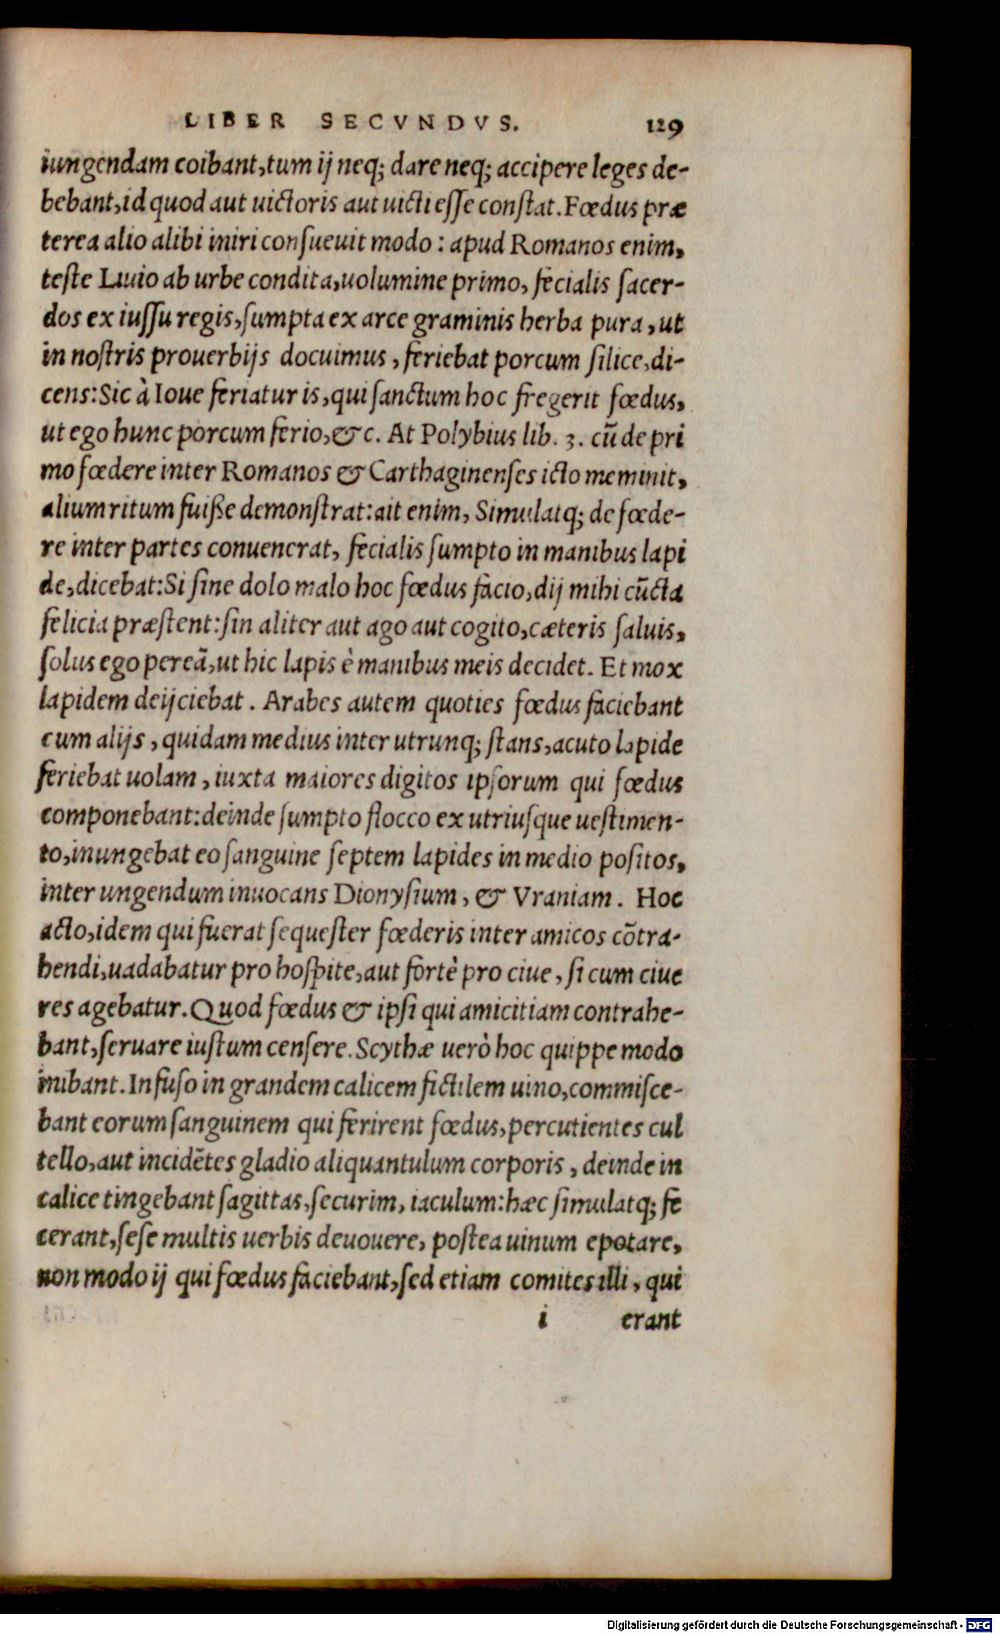 LIBER SECVNDVS. 129
iungendam coibant, tum ij neq; dare neq; accipere leges de-
bebant, id quod aut uictoris aut uicti esse constat. Fœdus præ
terea alio alibi iniri consueuit modo: apud Romanos enim,
teste Liuio ab urbe condita, uolumine primo, fecialis sacer-
dos ex iussu regis, sumpta ex arce graminis herba pura, ut
in nostris prouerbijs docuimus, feriebat porcum silice, di-
cens: Sic à Ioue feriatur is, qui sanctum hoc fregerit fœdus,
ut ego hunc porcum ferio, &c. At Polybius lib. 3. cũ de pri
mo fœdere inter Romanos & Carthaginenses icto meminit,
alium ritum fuiße demonstrat: ait enim, Simulatq; de fœde-
re inter partes conuenerat, fecialis sumpto in manibus lapi
de, dicebat: Si sine dolo malo hoc fœdus facio, dij mihi cũcta
felicia præstent: sin aliter aut ago aut cogito, cæteris saluis,
solus ego pereã, ut hic lapis è manibus meis decidet. Et mox
lapidem deijciebat. Arabes autem quoties fœdus faciebant
cum alijs, quidam medius inter utrunq; stans, acuto lapide
feriebat uolam, iuxta maiores digitos ipsorum qui fœdus
componebant: deinde sumpto flocco ex utriusque uestimen-
to, inungebat eo sanguine septem lapides in medio positos,
inter ungendum inuocans Dionysium, & Vraniam. Hoc
acto, idem qui fuerat sequester fœderis inter amicos cõtra-
hendi, uadabatur pro hospite, aut fortè pro ciue, si cum ciue
res agebatur. Quod fœdus & ipsi qui amicitiam contrahe-
bant, seruare iustum censere. Scythæ uerò hoc quippe modo
inibant. Infuso in grandem calicem fictilem uino, commisce-
bant eorum sanguinem qui ferirent fœdus, percutientes cul
tello, aut incidẽtes gladio aliquantulum corporis, deinde in
calice tingebant sagittas, securim, iaculum: hæc simulatq; fe
cerant, sese multis uerbis deuouere, postea uinum epotare,
non modo ij qui fœdus faciebant, sed etiam comites illi, qui
i erant
Digitalisierung gefördert durch die Deutsche Forschungsgemeinschaft - DFG